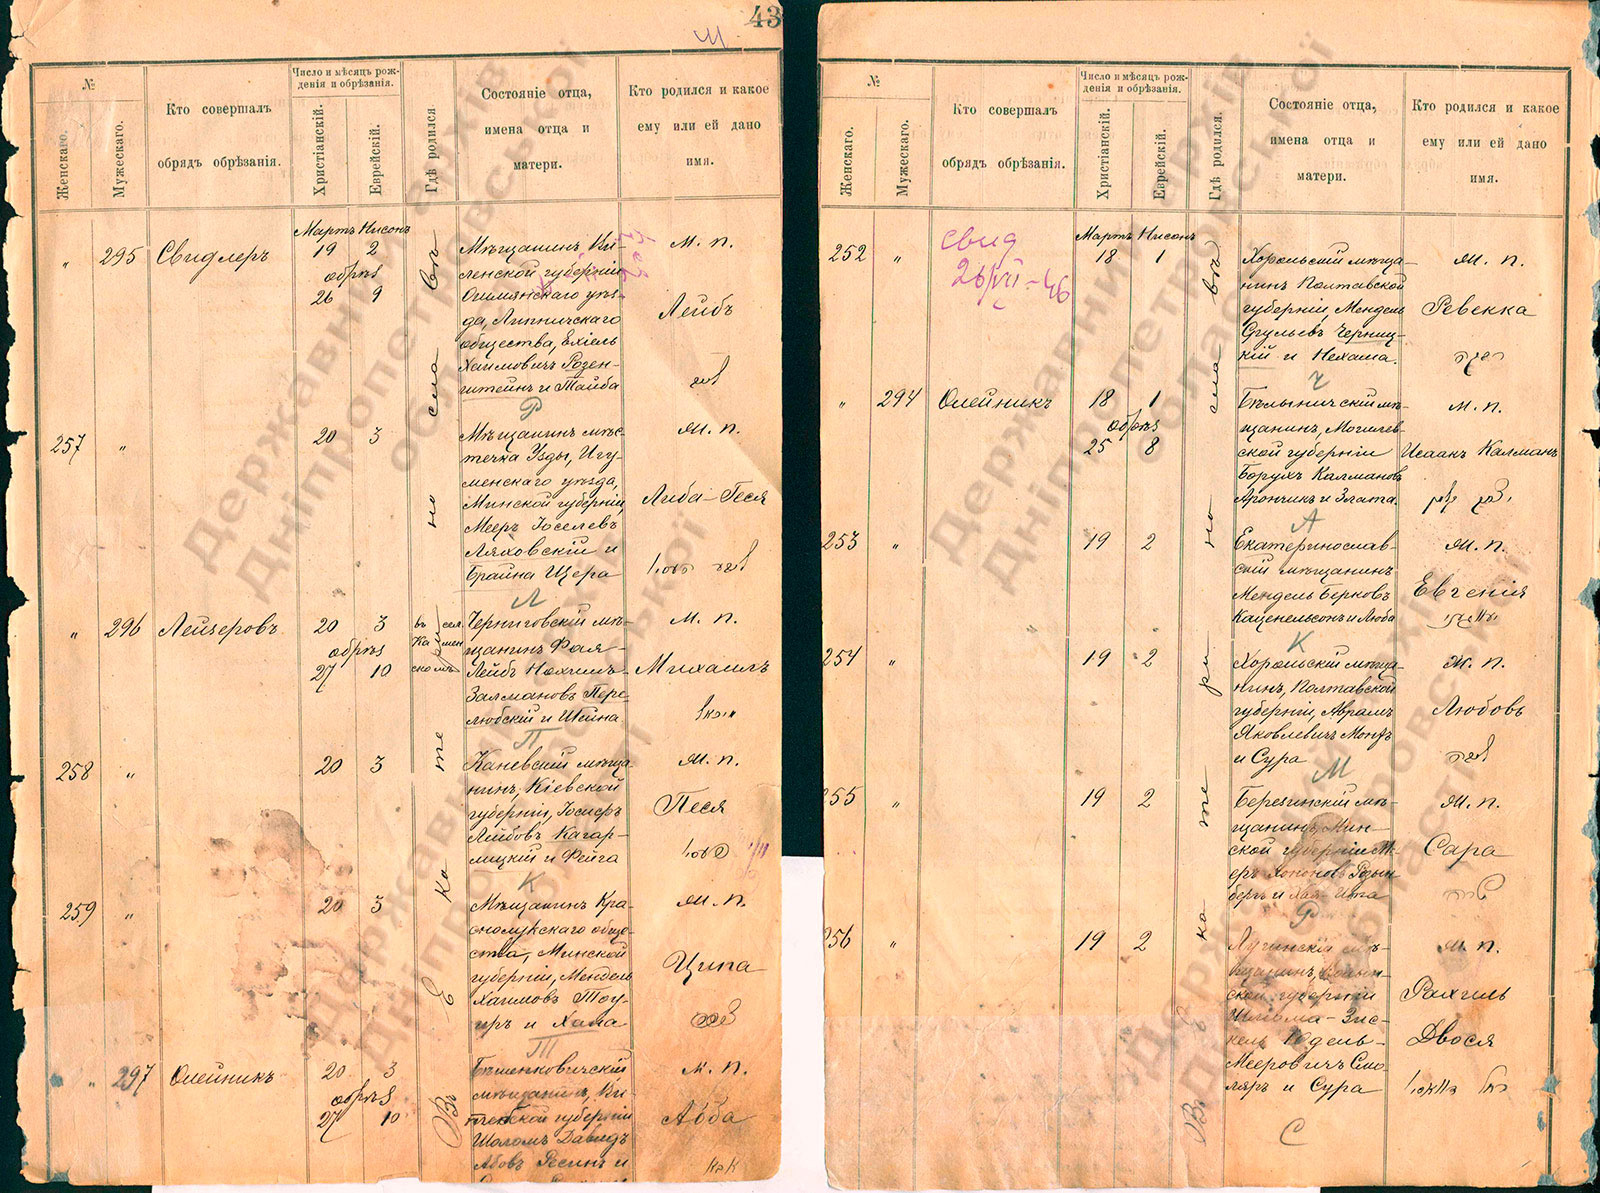 43
М
№
Женскаго.
Мужескаго.
Кто совершалъ
обрядъ обрѣзанія.
Число и мѣсяцъ рож-
денія и обрѣзанія.
Христіанскій.
Еврейскій.
Гдѣ родился.
Состояніе отца,
имена отца и
матери.
Кто родился и какое
ему или ей дано
имя.
Въ Екатеринославѣ
" 295 Свидлеръ
Мартъ Нисонъ
19 2
обрѣз
26 9
Мѣщанинъ Ви-
ленской губерніи
Ошмянскаго уѣз-
да, Липничскаго
общества, Ехіель
Хаимовичъ Розен-
штейнъ и Тайба
Р
М. п.
Лейбъ
257 "
20 3
Мѣщанинъ мѣс-
течка Узды, Игу-
менскаго уѣзда,
Минской губерніи,
Мееръ Іоселевъ
Ляховскій и
Брайна Щера
Л
М. п.
Либа-Геся
" 296 Лейзеровъ
20 3
обрѣз
27 10
въ сел.
Камен
скомъ
Черниговскій мѣ-
щанинъ Фая-
Лейбъ Нохимъ-
Залмановъ Пере-
любскій и Шейна
П
М. п.
Михаилъ
258 "
20 3
Каневскій мѣща-
нинъ, Кіевской
губерніи, Іосифъ
Лейбовъ Кагар-
лицкій и Фейга
К
М. п.
Песя
259 "
20 3
Мѣщанинъ Кра-
снолукскаго обще-
ства, Минской
губерніи, Мендель
Хаимовъ Тоу-
иръ и Хама
Т
М. п.
Ципа
" 297 Олейникъ
20 3
обрѣз
27 10
Бѣшенковичскій
мѣщанинъ, Ви-
тебской губерніи
Шоломъ Давидъ
Абовъ Ресинъ и
М. п.
Абба
№
Женскаго.
Мужескаго.
Кто совершалъ
обрядъ обрѣзанія.
Число и мѣсяцъ рож-
денія и обрѣзанія.
Христіанскій.
Еврейскій.
Гдѣ родился.
Состояніе отца,
имена отца и
матери.
Кто родился и какое
ему или ей дано
имя.
Въ Екатеринославѣ
252 "
свид
26/VII-46
Мартъ Нисонъ
18 1
Хорольскій мѣща-
нинъ Полтавской
губерніи, Мендель
Сгульевъ Черниц-
кій и Нехама.
Ч
М. п.
Ревекка
" 294 Олейникъ
18 1
обрѣз
25 8
Бѣлыничскій мѣ-
щанинъ, Могилев
ской губерніи
Борухъ Калмановъ
Арончикъ и Злата.
А
М. п.
Исаакъ Калманъ
253 "
19 2
Екатеринослав-
скій мѣщанинъ
Мендель Берковъ
Каценельсонъ и Люба
К
М. п.
Евгенія
254 "
19 2
Хорольскій мѣща-
нинъ, Полтавской
губерніи, Аврамъ
Яковлевичъ Монтъ
и Сура
М
М. п.
Любовь
255 "
19 2
Березинскій мѣ-
щанинъ, Мин-
ской губерніи М-
еръ Хононовъ Розин
беръ и Хая-Ита
Р
М. п.
Сара
256 "
19 2
Лугинскій мѣ-
щанинъ, Волын-
ской губерніи
Шліома-Зис-
кель Юдель-
Мееровичъ Смо-
ляръ и Сура
С
М. п.
Рахиль
Двося
Державний архів
Дніпропетровської
області